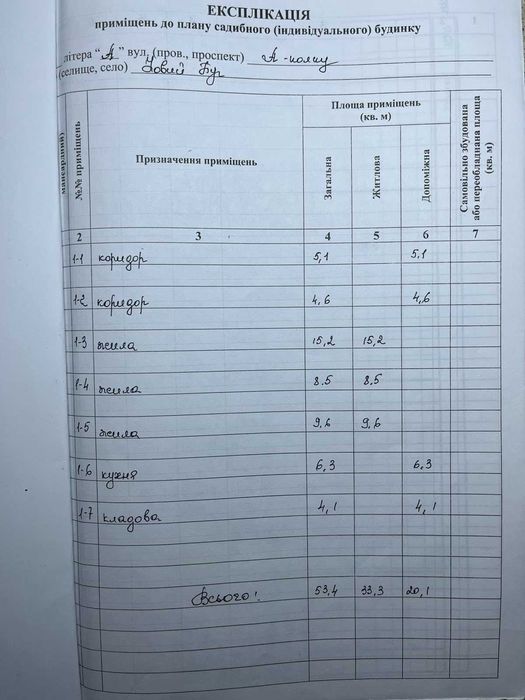 ЕКСПЛІКАЦІЯ
приміщень до плану садибного (індивідуального) будинку
літера “А” вул. (пров., проспект)
(селище, село) Новий Буг
№№ приміщень
Призначення приміщень
Площа приміщень
(кв. м)
Загальна
Житлова
Допоміжна
Самовільно збудована
або переобладнана площа
(кв. м)
2 3 4 5 6 7
1-1 коридор 5,1 5,1
1-2 коридор 4,6 4,6
1-3 жила 15,2 15,2
1-4 жила 8.5 8.5
1-5 жила 9,6 9,6
1-6 кухня 6,3 6,3
1-7 кладова 4,1 4,1
Всього: 53,4 33,3 20,1